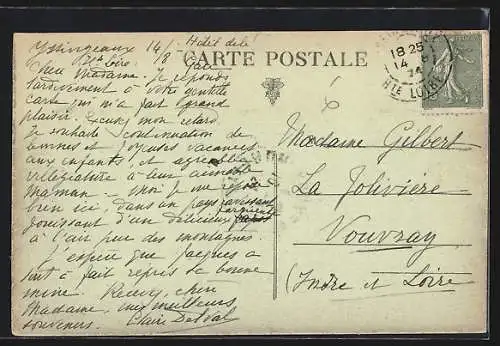 Yssingeaux 14/8 Hôtel de la
Hte Loire Gare
CARTE POSTALE
Chère Madame, Je réponds
tardivement à votre gentille
carte qui m'a fait grand
plaisir. Excusez mon retard.
Je souhaite continuation de
bonnes et joyeuses vacances
aux enfants, et agréable
villégiature à leur aimable
Maman - Moi je me repose
bien ici, dans un pays ravissant
jouissant d'un délicieux
à l'air pur des montagnes.
J'espère que Jacques a
tout à fait repris sa bonne
mine. Recevez, chère
Madame, mes meilleurs
souvenirs. Claire Delval
18 25
14 -8
24
HTE LOIRE
Madame Gilbert
La Jolivière
Vouvray
(Indre et Loire